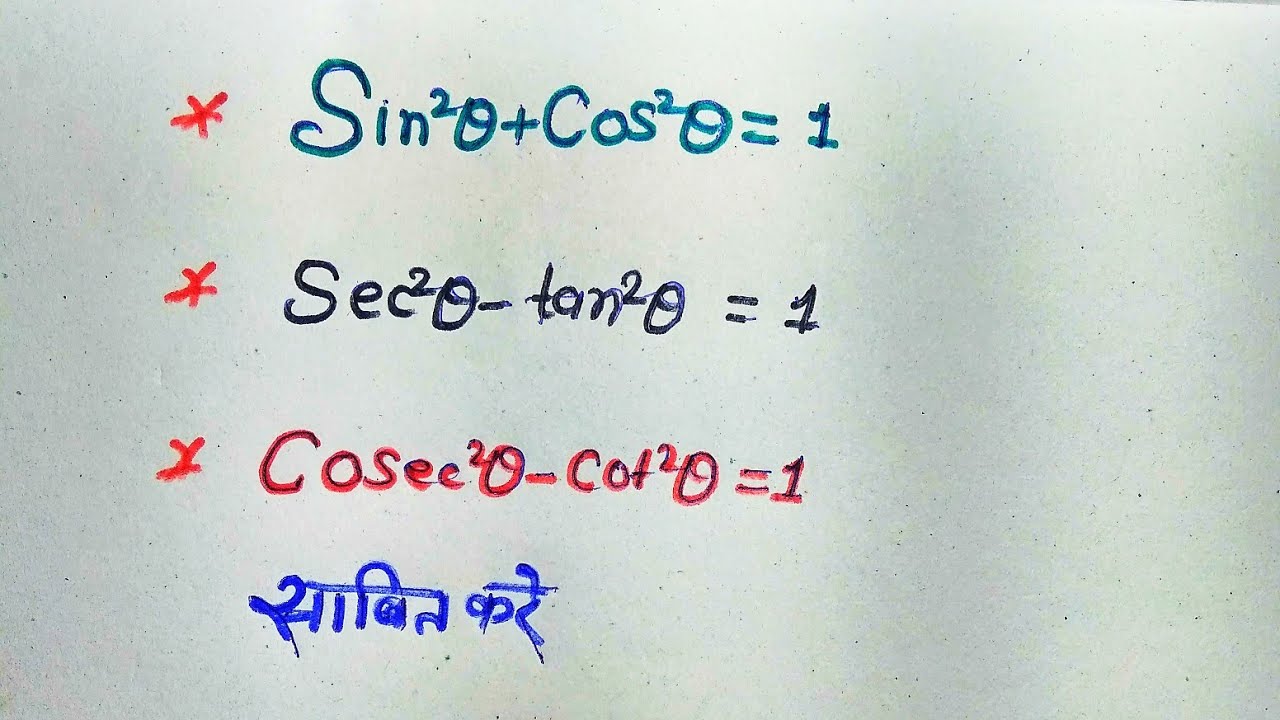 * Sin²θ+Cos²θ= 1
* Sec²θ- tan²θ = 1
* Cosec²θ-Cot²θ=1
साबित करे